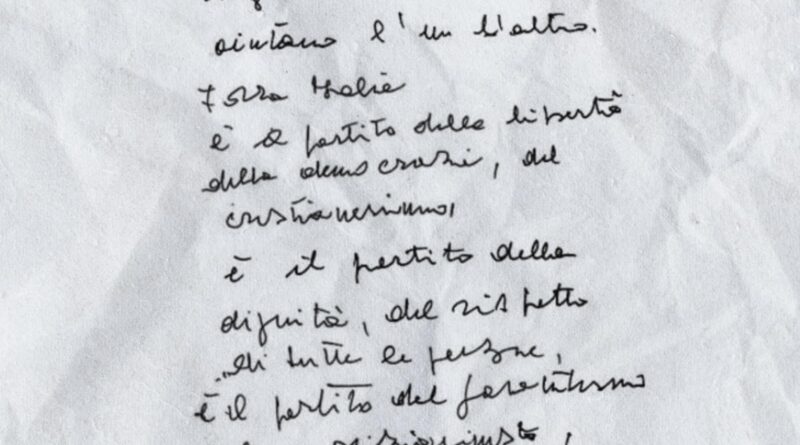 aiutano l'un l'altro.
Forza Italia
è il partito della libertà
della democrazia, del
cristianesimo,
è il partito della
dignità, del rispetto
di tutte le persone,
è il partito del garantismo